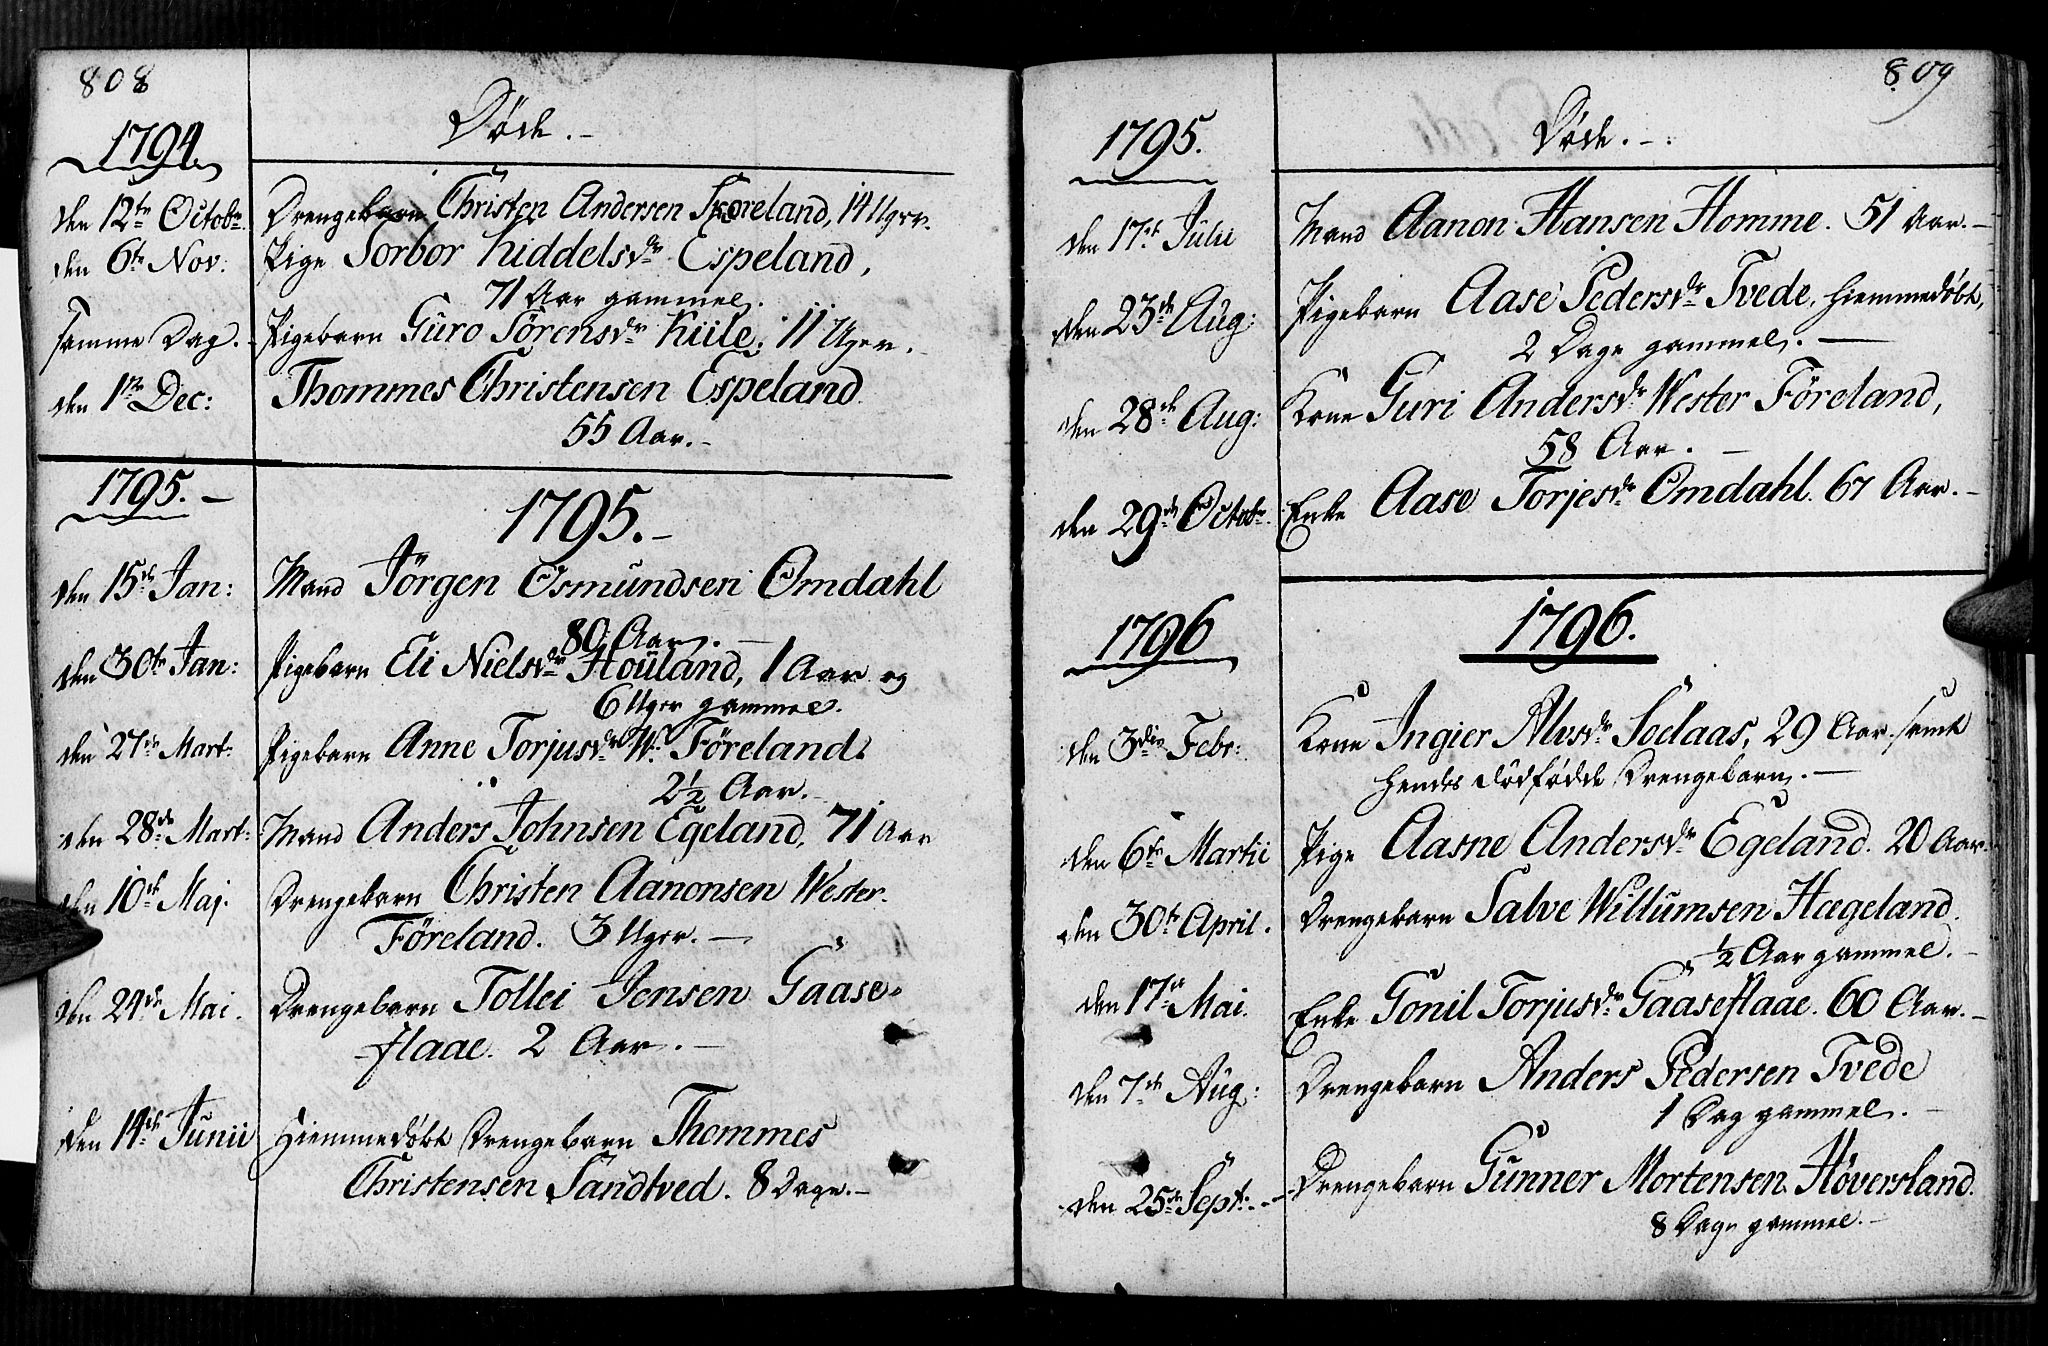 808
Døde.-
1794.
den 12te Octobr. Drengebarn Christen Andersen Føreland, 14 Uger.
den 6te Nov: Pige Torbor Kiddelsdr Espeland,
71 Aar gammel.
samme Dag. Pigebarn Guro Sørensdr Kiile. 11 Uger.
den 1te Dec: Thommes Christensen Espeland
55 Aar.-
1795.- 1795.-
den 15de Jan: Mand Jørgen Osmundsen Omdahl
80 Aar.-
den 30te Jan: Pigebarn Eli Nielsdr Houland, 1 Aar og
6 Uger gammel.
den 27de Mart: Pigebarn Anne Torjusdr W. Føreland.
2½ Aar.-
den 28de Mart: Mand Anders Johnsen Egeland, 71 Aar
den 10de Maj. Drengebarn Christen Aanonsen Wester
Føreland. 3 Uger.-
den 24de Mai. Drengebarn Tollei Jensen Gaase-
flaae. 2 Aar.-
den 14de Junii Hiemmedøbt Drengebarn Thommes
Christensen Sandtved. 8 Dage.-
809
Døde.-
1795.
den 17de Julii Mand Aanon Hansen Homme. 51 Aar.-
den 23de Aug: Pigebarn Aase Pedersdr Tvede, hiemmedøbt,
2 Dage gammel.-
den 28de Aug: Kone Guri Andersdr Wester Føreland,
58 Aar.-
den 29de Octobr. Enke Aase Torjesdr Omdahl. 67 Aar.-
1796 1796.
den 3die Febr: Kone Ingier Alvsdr Soelaas, 29 Aar, samt
hendes dødfødde Drengebarn.-
den 6te Martii Pige Aasne Andersdr Egeland. 20 Aar.
den 30te April. Drengebarn Salve Willumsen Hægeland.
½ Aar gammel.-
den 17de Mai. Enke Gonil Torjusdr Gaaseflaae. 60 Aar.-
den 7de Aug: Drengebarn Anders Pedersen Tvede
1 Dag gammel.-
den 25de Sept:- Drengebarn Gunner Mortensen Høversland.
8 Dage gammel.-